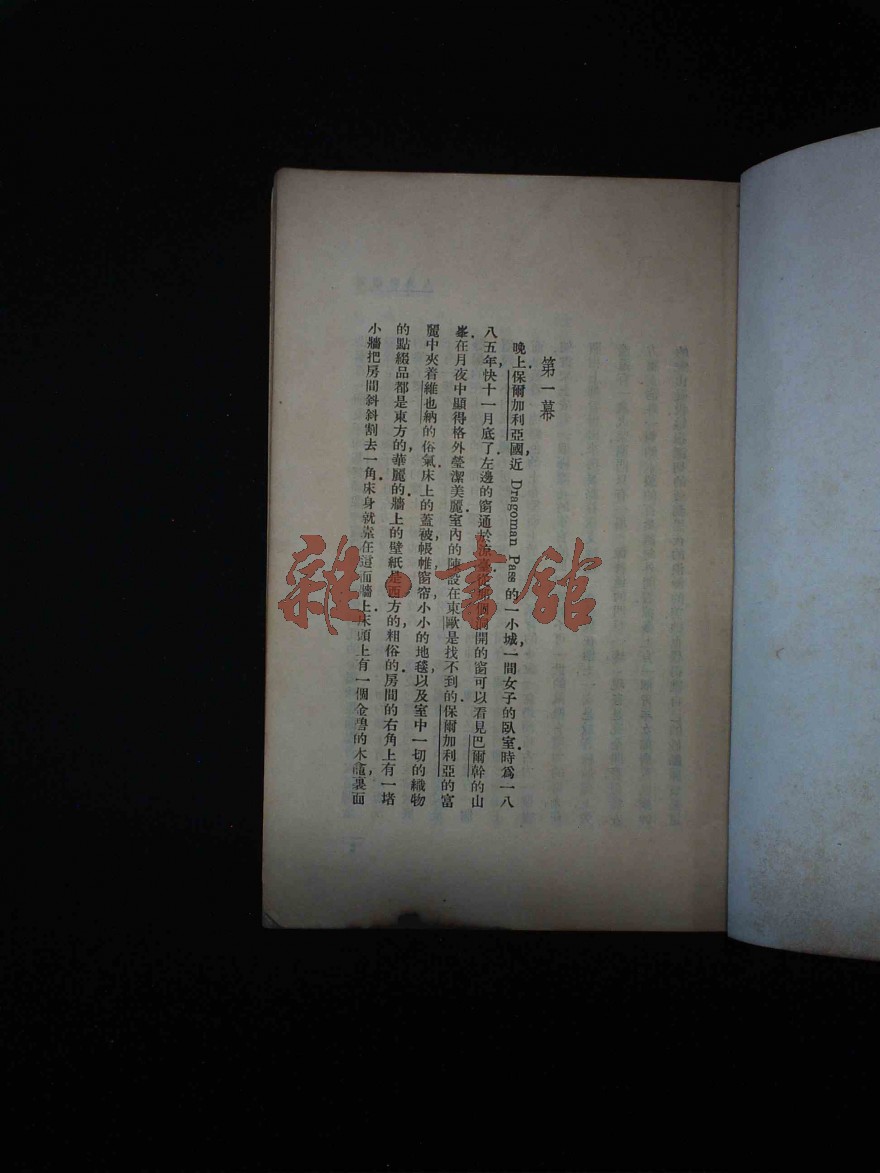 第一幕
晚上，保爾加利亞國，近 Dragoman Pass 的一小城，一間女子的臥室．時爲一八
八五年，快十一月底了．左邊的窗通於涼臺．從那個洞開的窗可以看見巴爾幹的山
峯．在月夜中顯得格外瑩潔美麗．室內的陳設在東歐是找不到的．保爾加利亞的富
麗中夾着維也納的俗氣．床上的蓋被，帳帷，窗帘，小小的地毯，以及室中一切的織物
的點綴品都是東方的，華麗的．牆上的壁紙是西方的，粗俗的．房間的右角上有一堵
小牆把房間斜斜割去一角．床身就靠在這面牆上．床頭上有一個金碧的木龕，裏面
雜·書館